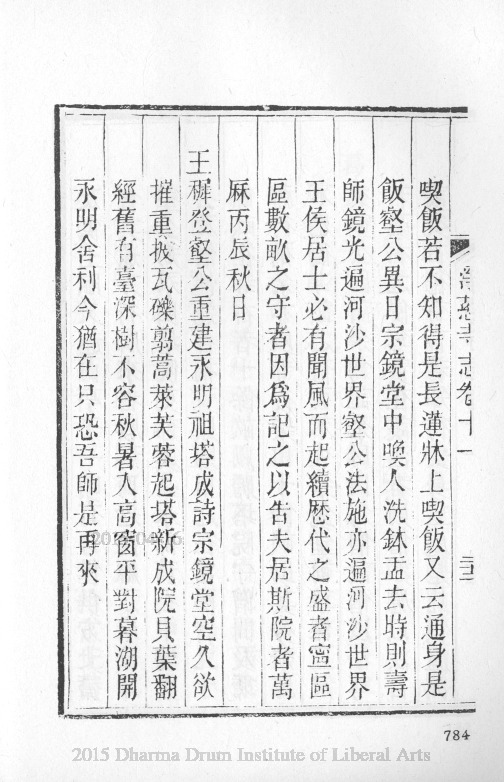 淨慈寺志卷十一
喫飯若不知得是長蓮牀上喫飯又云通身是
飯壑公異日宗鏡堂中喚人洗鉢盂去時則壽
師鏡光遍河沙世界壑公法施亦遍河沙世界
王侯居士必有聞風而起續歷代之盛者寧區
區數畝之守者因爲記之以告夫居斯院者萬
厤丙辰秋日
王穉登壑公重建永明祖塔成詩宗鏡堂空久欲
摧重披瓦礫翦蒿萊芙蓉起塔新成院貝葉翻
經舊有臺深樹不容秋暑入高窗平對暮湖開
永明舍利今猶在只恐吾師是再來
784
2015 Dharma Drum Institute of Liberal Arts